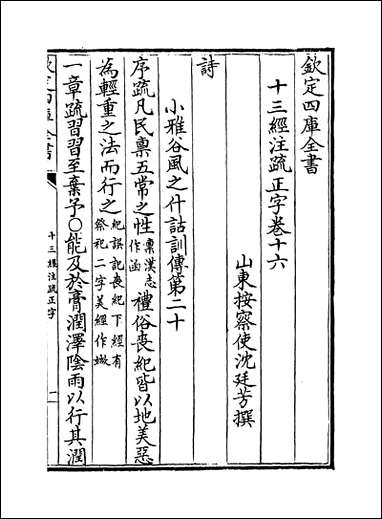 欽定四庫全書
十三經注疏正字卷十六
山東按察使沈廷芳撰
詩
小雅谷風之什詁訓傳第二十
序疏凡民禀五常之性禀漢志作函禮俗喪紀皆以地美惡
為輕重之法而行之紀誤記喪紀下經有祭祀二字美經作媺
一章疏習習至棄予○能及於膏潤澤陰雨以行其潤
欽定四庫全書
十三經注疏正字
一